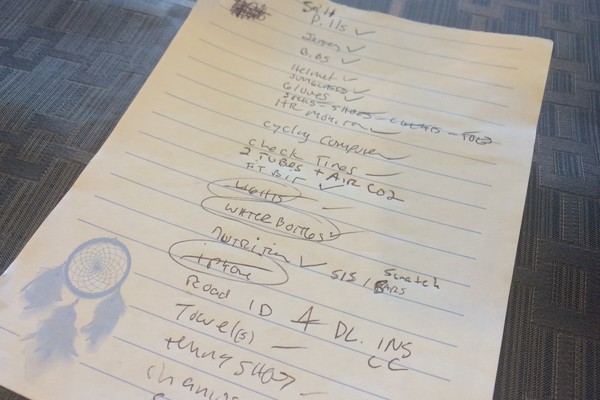 Salt
Pills
Jersey
BiBS
Helmet
SUNGLASSES
Gloves
SOCKS - SHOES - CLEATS - TOE
HR Monitor
Cycling Computer
Check Tires
2 TUBES + AIR CO2
FIT BIT
LIGHTS
WATER BOTTLES
Nutrition SIS / Scratch
BARS
iPhone
Road ID & DL. INS
CC
Towel(s)